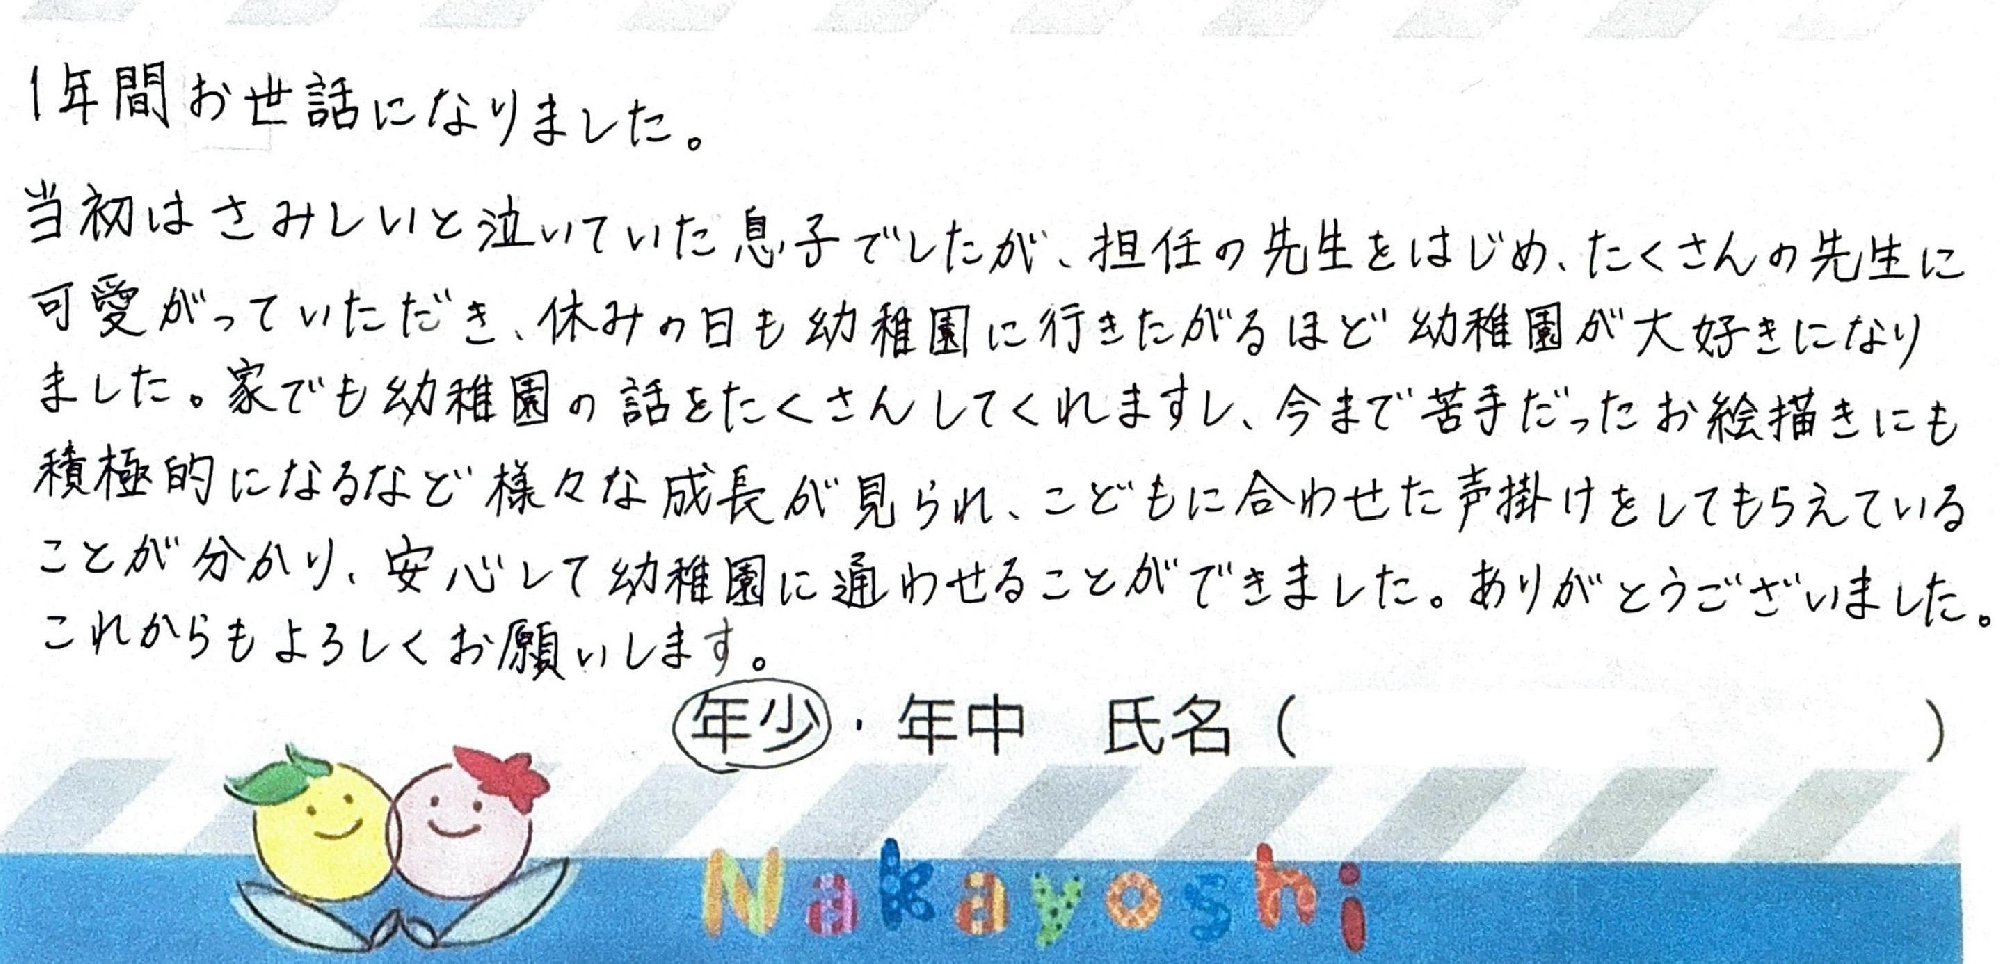 1年間お世話になりました。
当初はさみしいと泣いていた息子でしたが、担任の先生をはじめ、たくさんの先生に
可愛がっていただき、休みの日も幼稚園に行きたがるほど幼稚園が大好きになり
ました。家でも幼稚園の話をたくさんしてくれますし、今まで苦手だったお絵描きにも
積極的になるなど様々な成長が見られ、こどもに合わせた声掛けをしてもらえている
ことが分かり、安心して幼稚園に通わせることができました。ありがとうございました。
これからもよろしくお願いします。
年少・年中　氏名（　　　　　　　　　　）
Nakayoshi